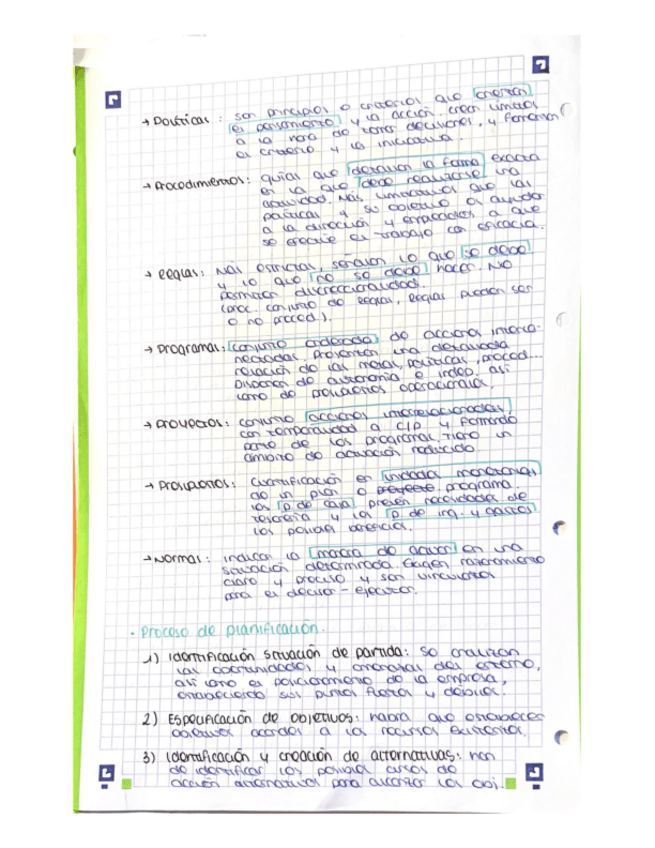 → Políticas: son principios o criterios que orientan
el pensamiento y la acción. Crean límites
a la hora de tomar decisiones, y fomentan
el criterio y la iniciativa.
→ Procedimientos: guías que detallan la forma exacta
en la que debe realizarse una
actividad. Más limitativos que las
políticas y su objetivo es ayudar
a la dirección y empleados a que
se efectúe el trabajo con eficacia.
→ Reglas: Más estrictas, señalan lo que se debe
y lo que no se debe hacer. No
permiten discrecionalidad.
(proc. conjunto de reglas, reglas pueden ser
o no proced.).
→ Programas: conjunto ordenado de acciones interco-
nectadas. Presentan una detallada
relación de las metas, políticas, proced...
Disponen de autonomía e indep. así
como de presupuestos operacionales.
→ Proyectos: conjunto acciones interrelacionadas,
con temporalidad a C/P y formando
parte de los programas. Tiene un
ámbito de actuación reducido.
→ Presupuestos: Cuantificación en unidades monetarias
de un plan o proyecto programa.
los p. de caja preven necesidades de
tesorería y los p. de ing. y gastos
los posibles beneficios.
→ Normas: indican la manera de actuar en una
situación determinada. Exigen razonamiento
claro y preciso y son vinculantes
para el decisor-ejecutor.
· Proceso de planificación.
1) Identificación situación de partida: se analizan
las oportunidades y amenazas del externo,
así como el posicionamiento de la empresa,
estableciendo sus puntos fuertes y débiles.
2) Especificación de objetivos: habrá que establecer
objetivos acordes a los recursos existentes.
3) Identificación y creación de alternativas: han
de identificar los posibles cursos de
acción alternativos para alcanzar los obj.